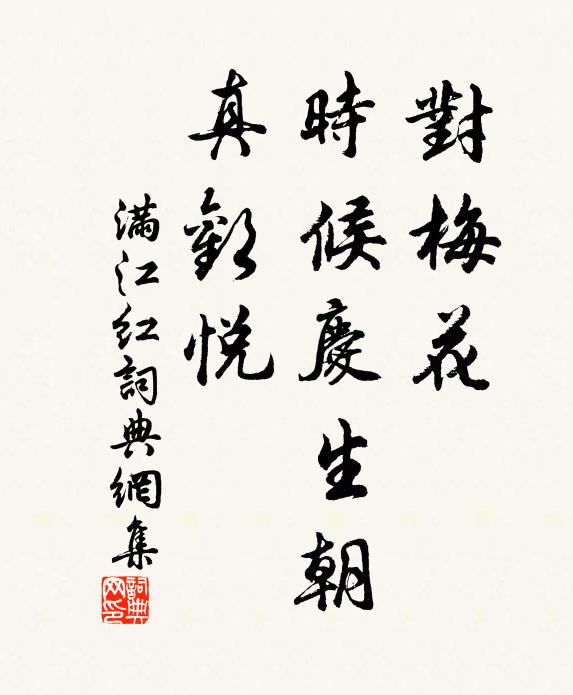 對梅花
時候慶生朝
真歡悅
滿江紅詞典網集
詞典网印